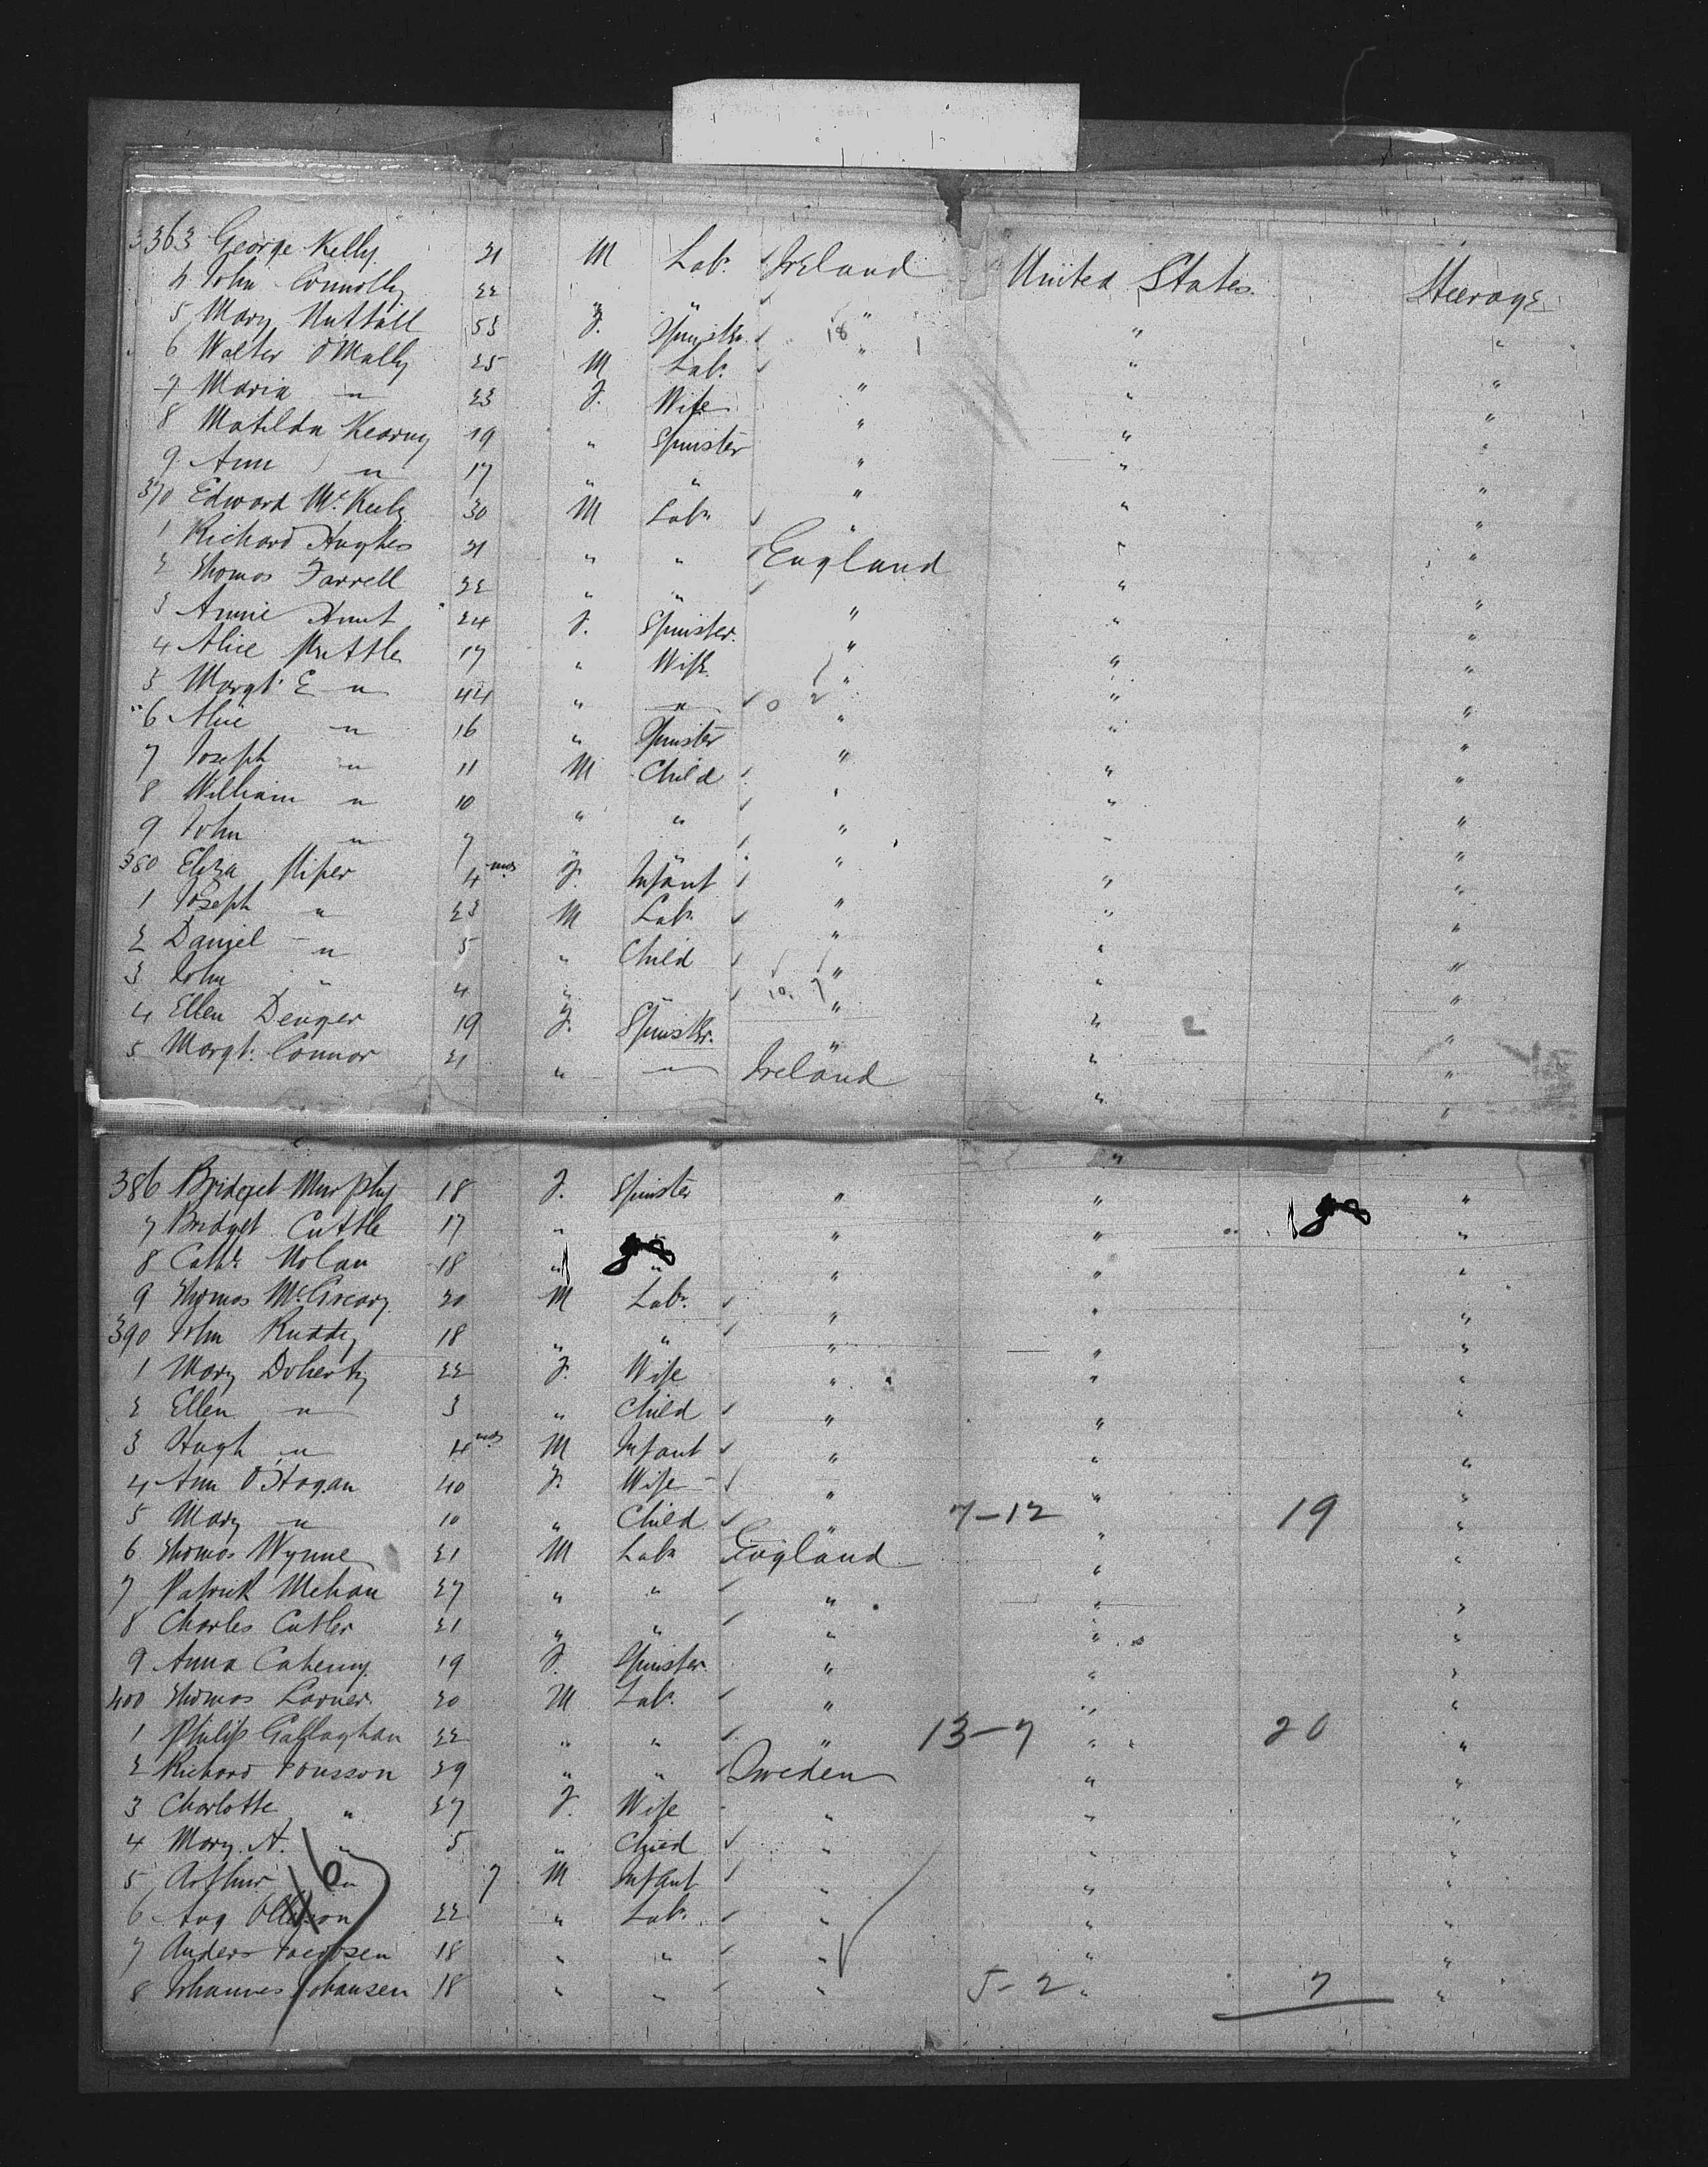 363 George Kelly 21 M Labr. Ireland United States Steerage
4 John Connolly 22 " " " " "
5 Mary Nuttall 53 F. Spinster 18 " " "
6 Walter O'Mally 25 M Labr. " " "
7 Maria " 23 F. Wife " " "
8 Matilda Kearny 19 " Spinster " " "
9 Ann " 17 " " " " "
370 Edward McKeely 30 M Labr " " "
1 Richard Hughes 21 " " England " "
2 Thomas Farrell 22 " " " " "
3 Annie Hunt 24 F. Spinster. " " "
4 Alice Kuttle 17 " Wife " " "
5 Margt. E " 44 " " 0 2 " " "
6 Alice " 16 " Spinster " " "
7 Joseph " 11 M Child " " "
8 William " 10 " " " " "
9 John " 7 " " " " "
380 Eliza Piper 4 mos F. Infant " " "
1 Joseph " 23 M Labr " " "
2 Daniel " 5 " Child " " "
3 John " 4 " " 10. 7 " " "
4 Ellen Denger 19 F. Spinster. " " "
5 Margt. Connor 21 " " Ireland " "
386 Bridget Murphy 18 F. Spinster " " "
7 Bridget Cuttle 17 " " " " "
8 Cathe Nolan 18 " " " " "
9 Thomas McGreary 20 M Labr. " " "
390 John Ruddy 18 " " " " "
1 Mary Doherty 22 F. Wife " " "
2 Ellen " 3 " Child " " "
3 Hugh " 4 mos M Infant " " "
4 Ann O'Hagan 40 F. Wife " " "
5 Mary " 10 " Child " 7-12 " 19 "
6 Thomas Wynne 21 M Labr England " "
7 Patrick Mehan 27 " " " " "
8 Charles Cutler 21 " " " " "
9 Anna Caheny 19 F. Spinster " " "
400 Thomas Larner 20 M Labr. " " "
1 Philip Gallaghan 22 " " " 13-7 " 20 "
2 Richard Jonsson 29 " " Sweden " "
3 Charlotte " 27 F. Wife " " "
4 Mary A. " 5 " Child " " "
5 Arthur " 7 M Infant " " "
6 Aug 22 " Labr. " " "
7 Anders Jacobsen 18 " " " " "
8 Johannes Johansen 18 " " " 5-2 " 7 "